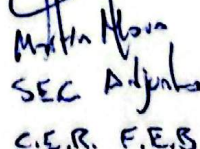 Martin
SEC Adjunto
C.E.R. F.E.B